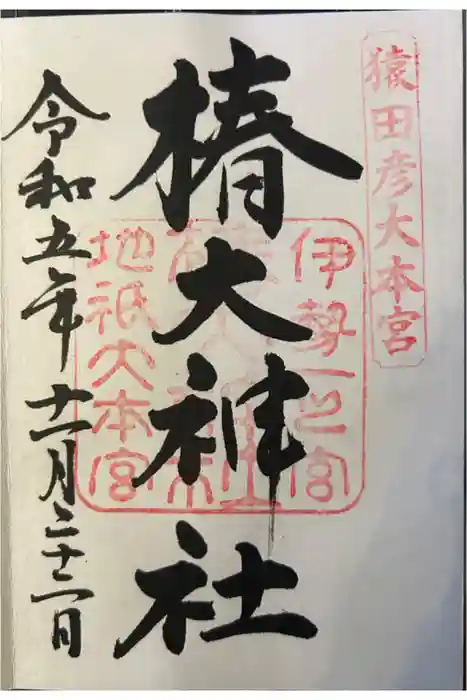 猿田彦大本宮
伊勢一之宮
椿大神社
地祇大本宮
令和五年十一月二十二日